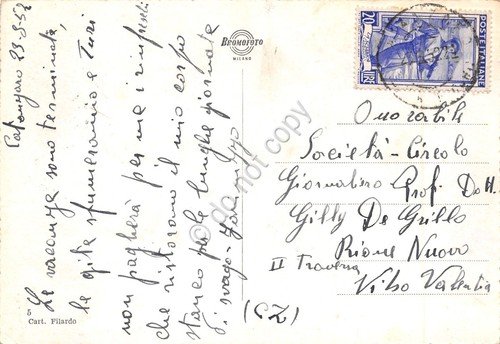 Catanzaro 23-8-52
Le vacanze sono terminate,
le gite sfumeranno e Turi
non pagherà per me i rinfreschi
che ristorano il mio corpo
stanco per le lunghe giornate
di svago -
5
Cart. Filardo
BROMOFOTO
MILANO
20
LIRE
POSTE ITALIANE
Onorabile
Società - Circolo
Giornaliero Prof. Dott.
Gilly De Grillo
Rione Nuovo
II Traversa
Vibo Valentia
(CZ)
do not copy